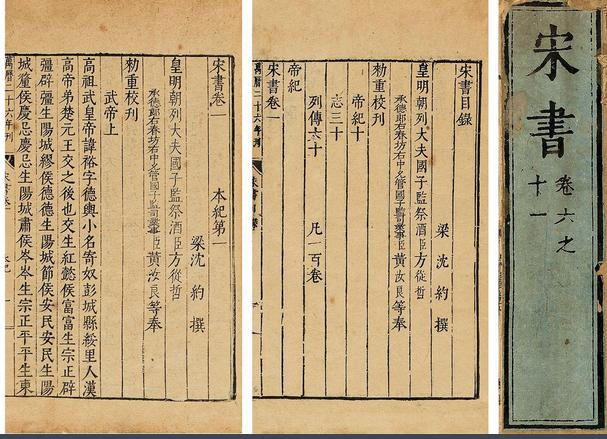 宋書
卷六之
十一
宋書目錄
梁 沈 約 撰
皇明朝列大夫國子監祭酒臣方從哲
承德郎右春坊右中允管國子監司業事臣黃汝良等奉
勑重校刊
帝紀十
志三十
列傳六十 凡一百卷
帝紀
宋書卷一
萬曆二十六年刊
宋書卷一 本紀第一
梁 沈 約 撰
皇明朝列大夫國子監祭酒臣方從哲
承德郎右春坊右中允管國子監司業事臣黃汝良等奉
勑重校刊
武帝上
高祖武皇帝諱裕字德輿小名寄奴彭城縣綏里人漢
高帝弟楚元王交之後也交生紅懿侯富富生宗正辟
彊辟彊生陽城繆侯德德生陽城節侯安民安民生陽
城釐侯慶忌慶忌生陽城肅侯岑岑生宗正平平生東
萬曆二十六年刊
宋書卷一